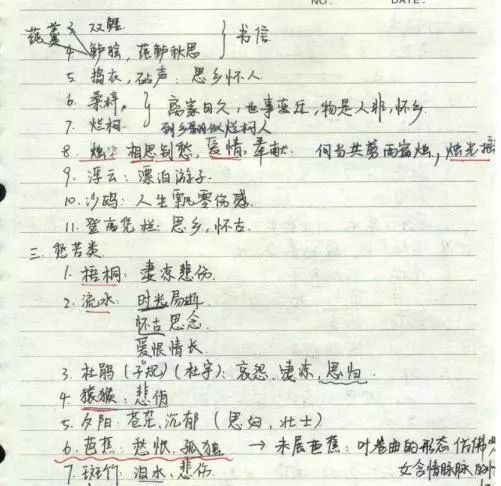 NO. DATE.
莼羹 3. 双鲤 } 书信
4. 鲈脍, 莼鲈秋思
5. 捣衣, 砧声: 思乡怀人
6. 桑梓, } 离家日久, 世事变迁, 物是人非, 怀乡
7. 烂柯 到乡翻似烂柯人
8. 烛: 相思别愁, 爱情, 奉献. 何当共剪西窗烛, 烛光
9. 浮云: 漂泊游子
10. 沙鸥: 人生飘零伤感
11. 登高凭栏: 思乡, 怀古
三. 愁苦类
1. 梧桐: 凄凉悲伤
2. 流水: 时光易逝
怀古思念
爱恨情长
3. 杜鹃 (子规) (杜宇): 哀怨, 凄凉, 思归
4. 猿猴: 悲伤
5. 夕阳: 苍茫, 沉郁 (思妇, 壮士)
6. 芭蕉: 愁恨, 孤独 → 未展芭蕉: 叶卷曲的形态仿佛
7. 斑竹: 泪水, 悲伤. 女含情脉脉的